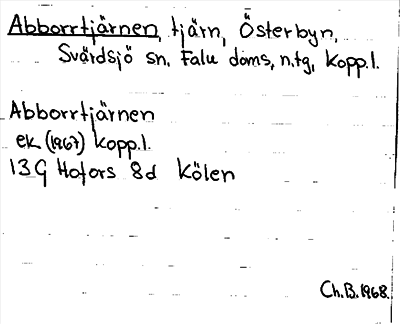 Abborrtjärnen, tjärn, Österbyn,
Svärdsjö sn, Falu doms, n.tg, Kopp.l.
Abborrtjärnen
ek (1967) Kopp.l.
13G Hofors 8d Kölen
Ch.B.1968.